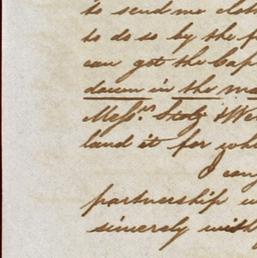 to send me clot
to do so by the p
can got the Cap
down in the ma
Messrs. Stolz & We
land it for whi
I can
partnership w
sincerely wish